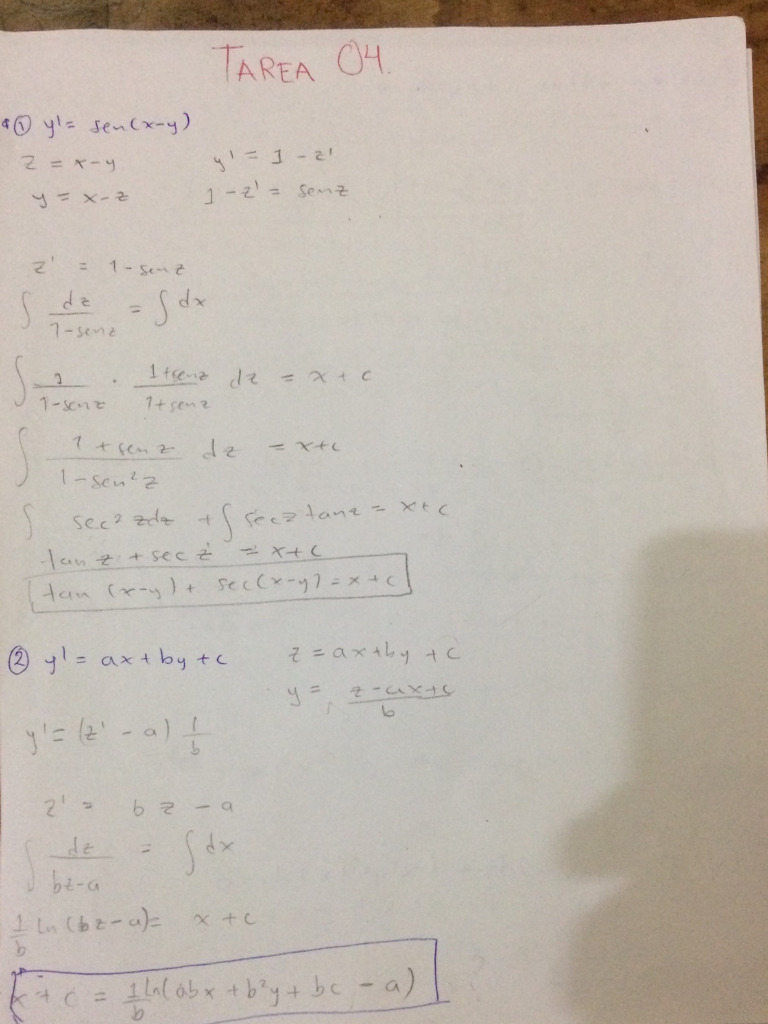 TAREA 04.
① y' = sen(x-y)
z = x-y    y' = 1 - z'
y = x-z    1-z' = senz
z' = 1-senz
∫ dz/(1-senz) = ∫ dx
∫ 1/(1-senz) · (1+senz)/(1+senz) dz = x + c
∫ (1 + sen z)/(1-sen²z) dz = x+c
∫ sec² z dz + ∫ secz tanz = x+c
tan z + sec z = x+c
tan (x-y) + sec(x-y) = x+c
② y' = ax+by+c    z = ax+by+c
y = (z-ax+c)/b
y' = (z' - a) 1/b
z' = bz - a
∫ dz/(bz-a) = ∫ dx
1/b Ln(bz-a) = x + c
x + c = 1/b Ln(abx + b²y + bc - a)